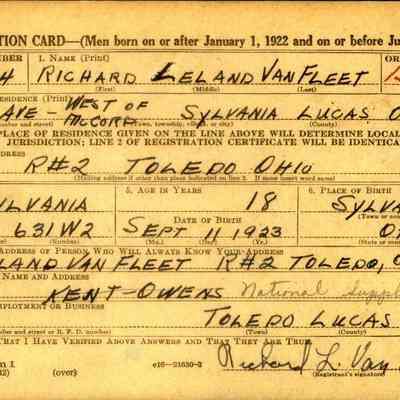 TION CARD—(Men born on or after January 1, 1922 and on or before Ju
MBER 1. NAME (Print) OR
4 RICHARD LELAND VAN FLEET
(First) (Middle) (Last)
RESIDENCE (Print)
AVE - WEST OF MCCORD SYLVANIA LUCAS O
number and street) (Town, township, village, or city) (County)
PLACE OF RESIDENCE GIVEN ON THE LINE ABOVE WILL DETERMINE LOCAL
JURISDICTION; LINE 2 OF REGISTRATION CERTIFICATE WILL BE IDENTICA
ADDRESS
R#2 TOLEDO OHIO
(Mailing address if other than place indicated on line 2. If same insert word same)
5. AGE IN YEARS 6. PLACE OF BIRTH
YLVANIA 18 SYLVA
DATE OF BIRTH (Town or
631W2 SEPT 11 1923 O
(Number) (Mo.) (Day) (Yr.) (State or
ADDRESS OF PERSON WHO WILL ALWAYS KNOW YOUR ADDRESS
LAND VAN FLEET R#2 TOLEDO, O
NAME AND ADDRESS
KENT-OWENS National Suppl
EMPLOYMENT OR BUSINESS
TOLEDO LUCAS
ber and street or R. F. D. number) (Town) (County)
THAT I HAVE VERIFIED ABOVE ANSWERS AND THAT THEY ARE TRUE.
M 1
42) (over) c16—21630-2 Richard L. Van
(Registrant's signature)